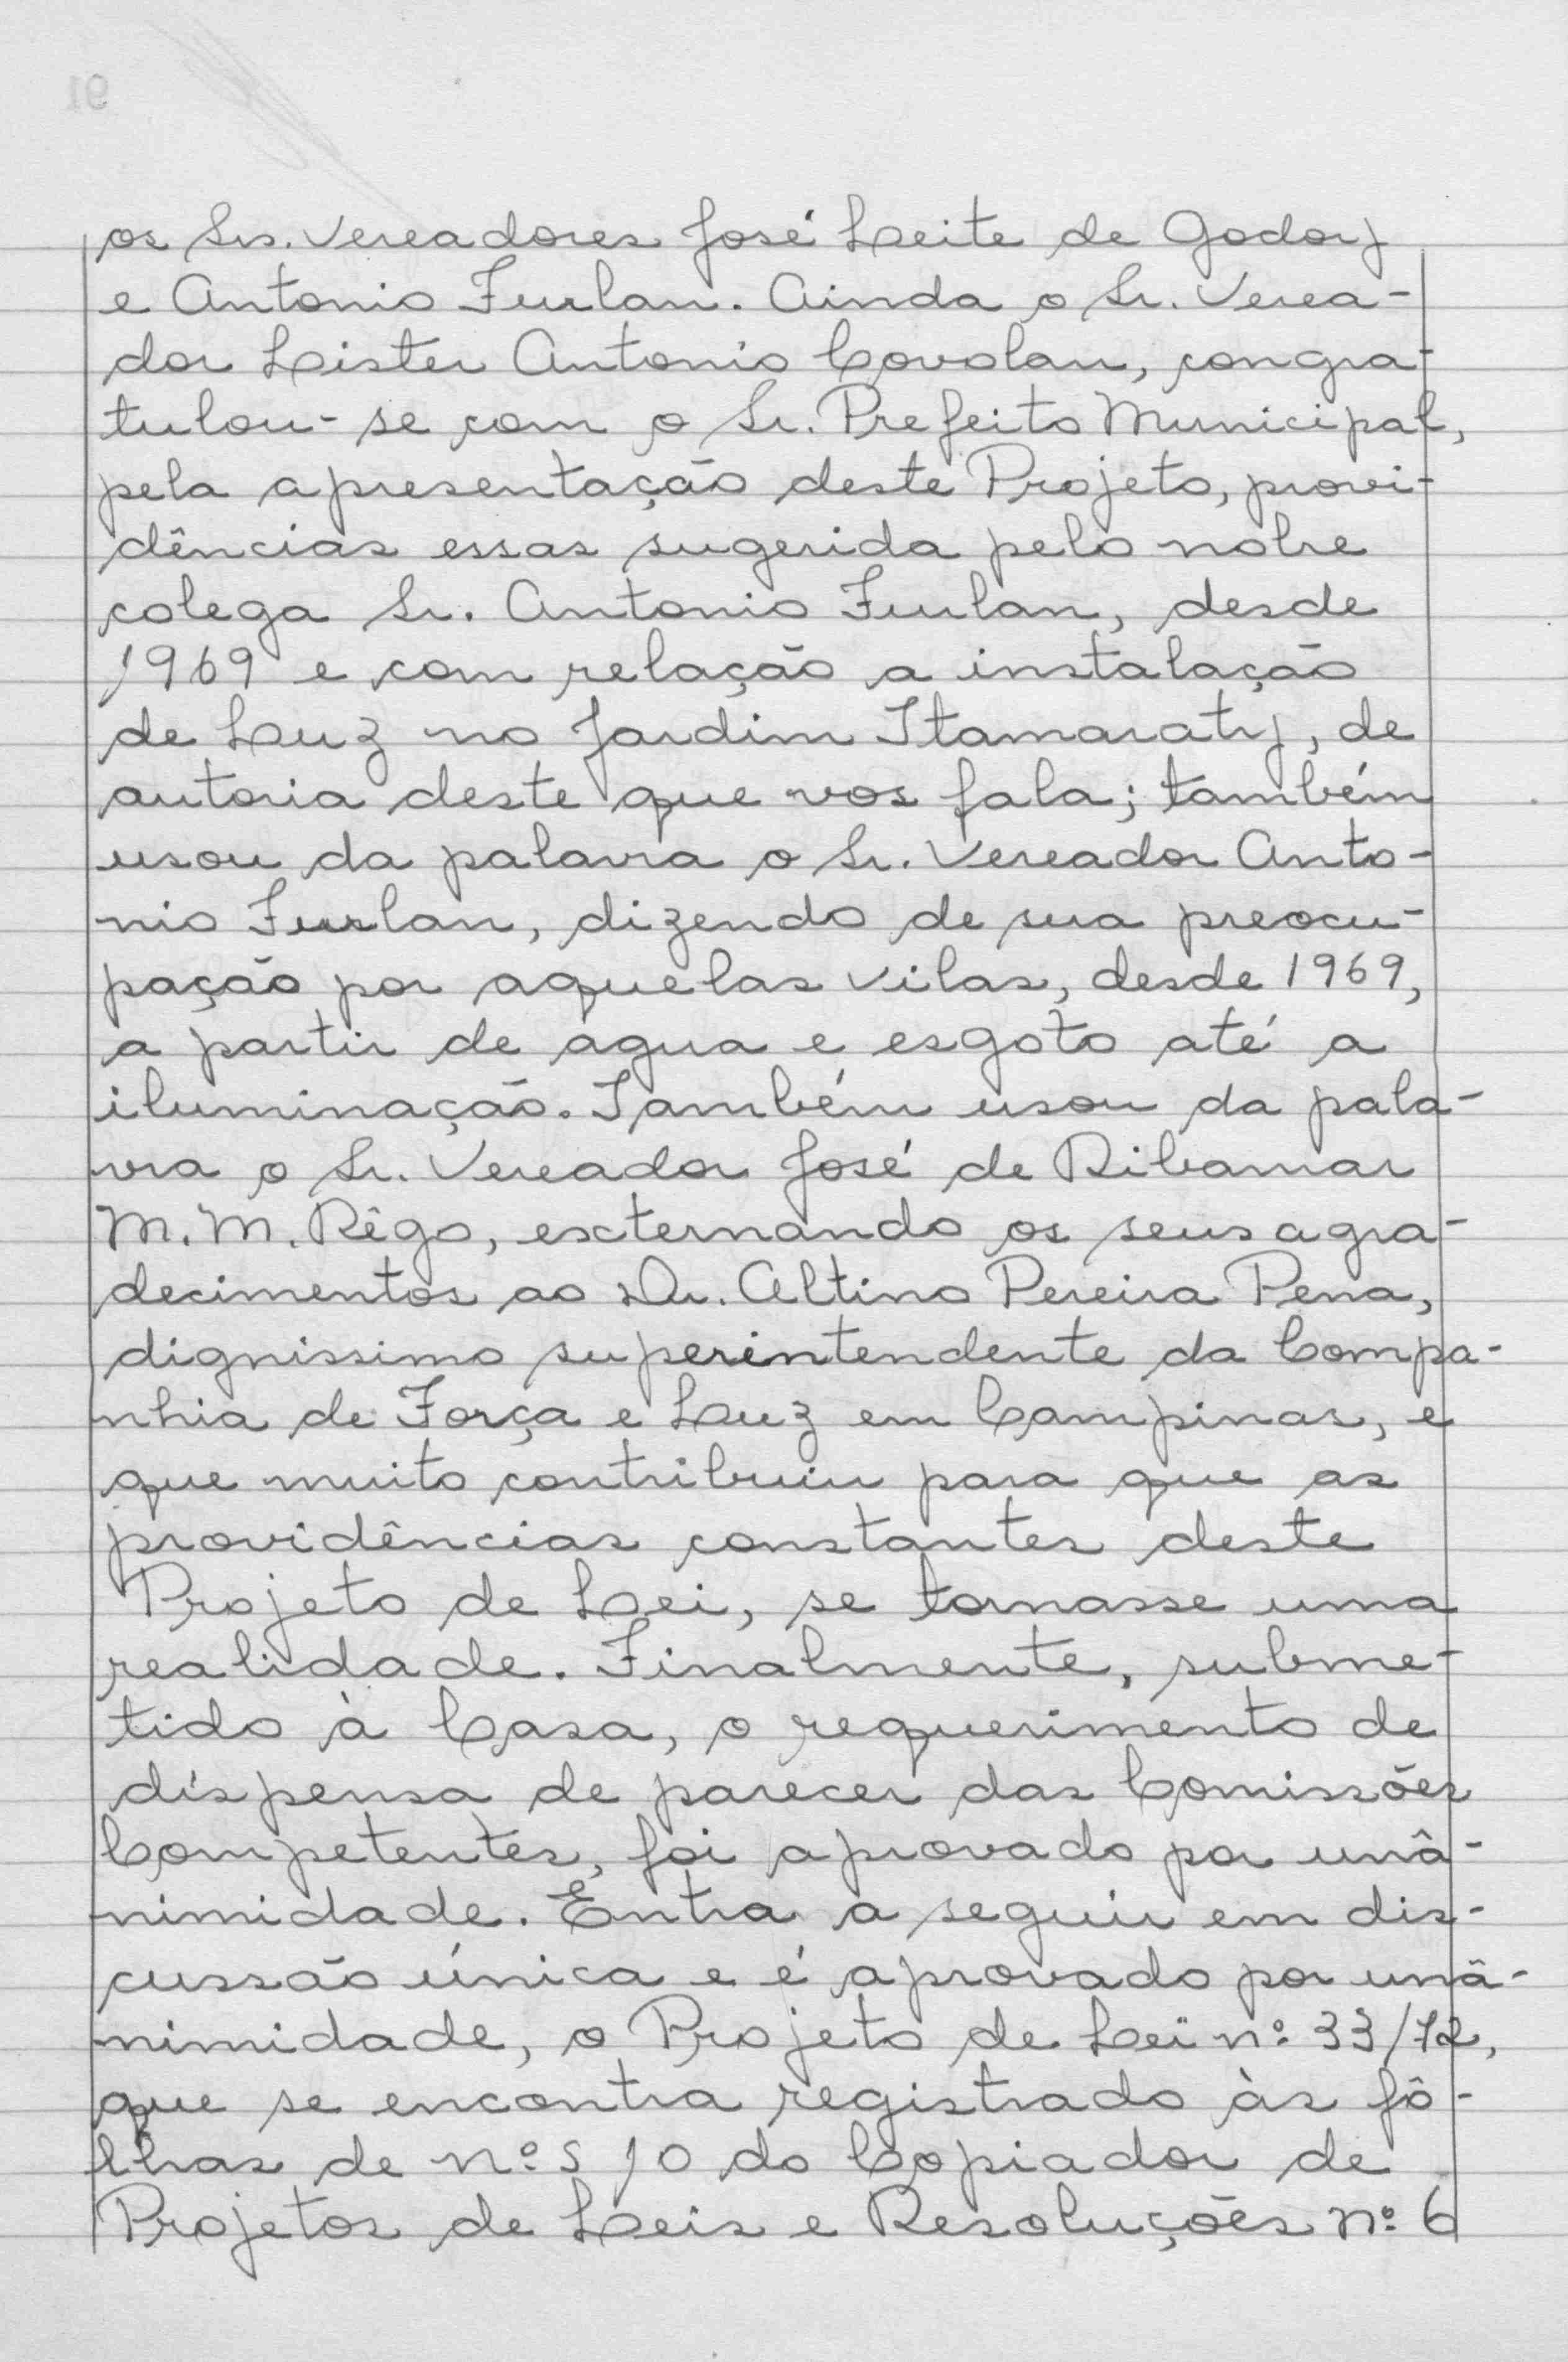 os Srs. Vereadores José Leite de Godoy
e Antonio Furlan. Ainda o Sr. Verea-
dor Lister Antonio Covolan, congra-
tulou-se com o Sr. Prefeito Municipal,
pela apresentação deste Projeto, provi-
dências essas sugerida pelo nobre
colega Sr. Antonio Furlan, desde
1969 e com relação a instalação
de Luz no Jardim Itamaraty, de
autoria deste que vos fala; também
usou da palavra o Sr. Vereador Anto-
nio Furlan, dizendo de sua preocu-
pação por aquelas vilas, desde 1969,
a partir de agua e esgoto até a
iluminação. Também usou da pala-
vra o Sr. Vereador José de Ribamar
M. M. Rêgo, externando os seus agra-
decimentos ao Dr. Altino Pereira Pena,
dignissimo superintendente da Compa-
nhia de Força e Luz em Campinas, e
que muito contribuiu para que as
providências constantes deste
Projeto de Lei, se tornasse uma
realidade. Finalmente, subme-
tido à Casa, o requerimento de
dispensa de parecer das Comissões
Competentes, foi aprovado por unâ-
nimidade. Entra a seguir em dis-
cussão única e é aprovado por unâ-
nimidade, o Projeto de Lei nº 33/72,
que se encontra registrado às fô-
lhas de nº s 10 do Copiador de
Projetos de Leis e Resoluções nº 6